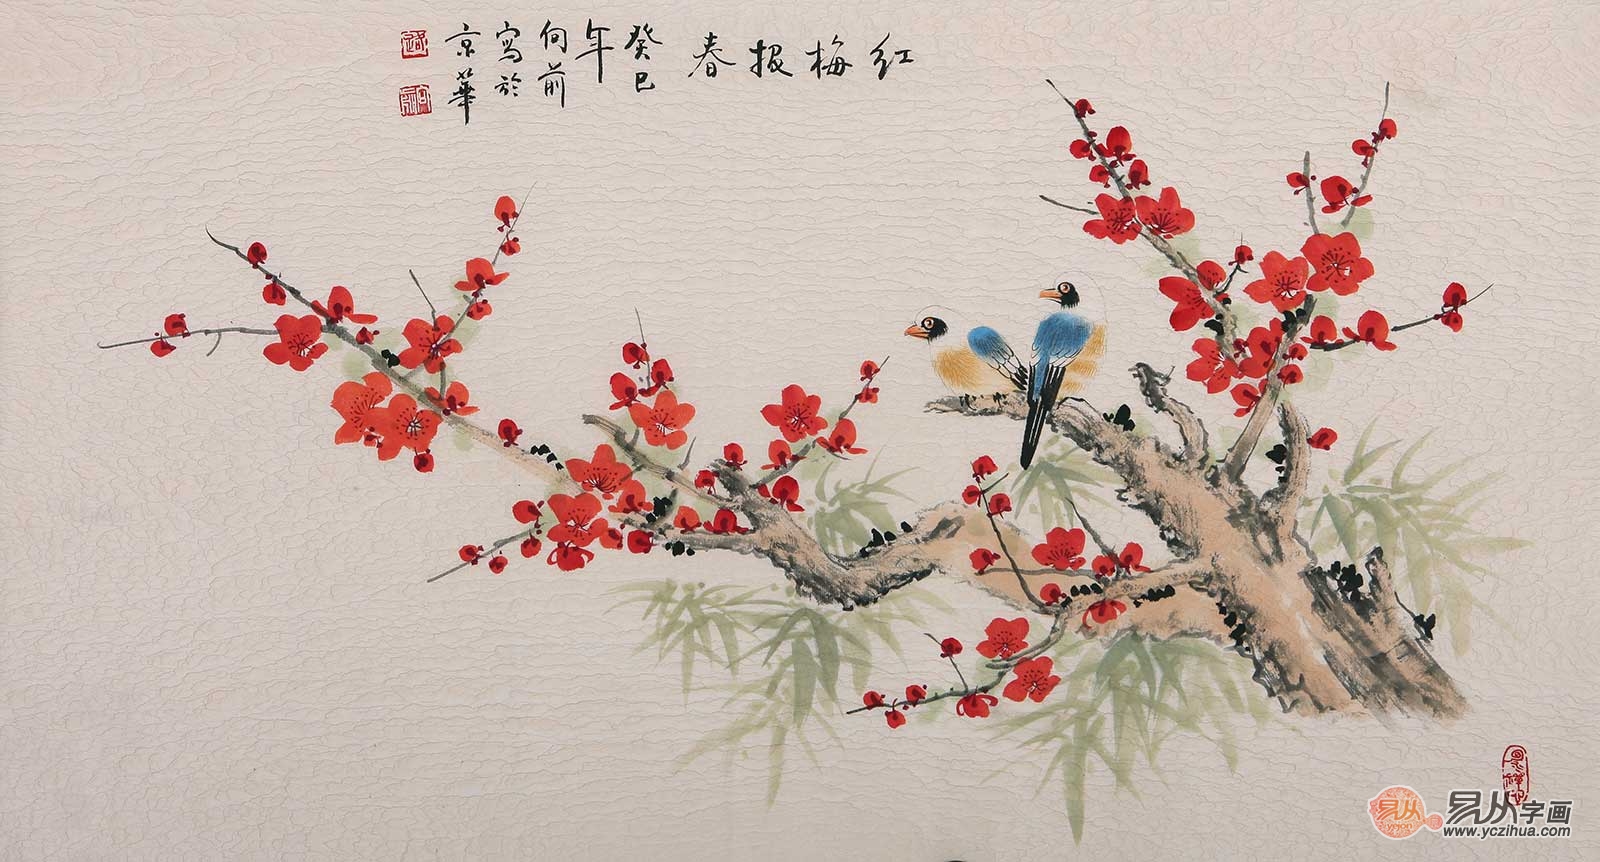 红梅报春
癸巳
年
向前
寫於
京華
易从
yicon
易从字画
www.yczihua.com